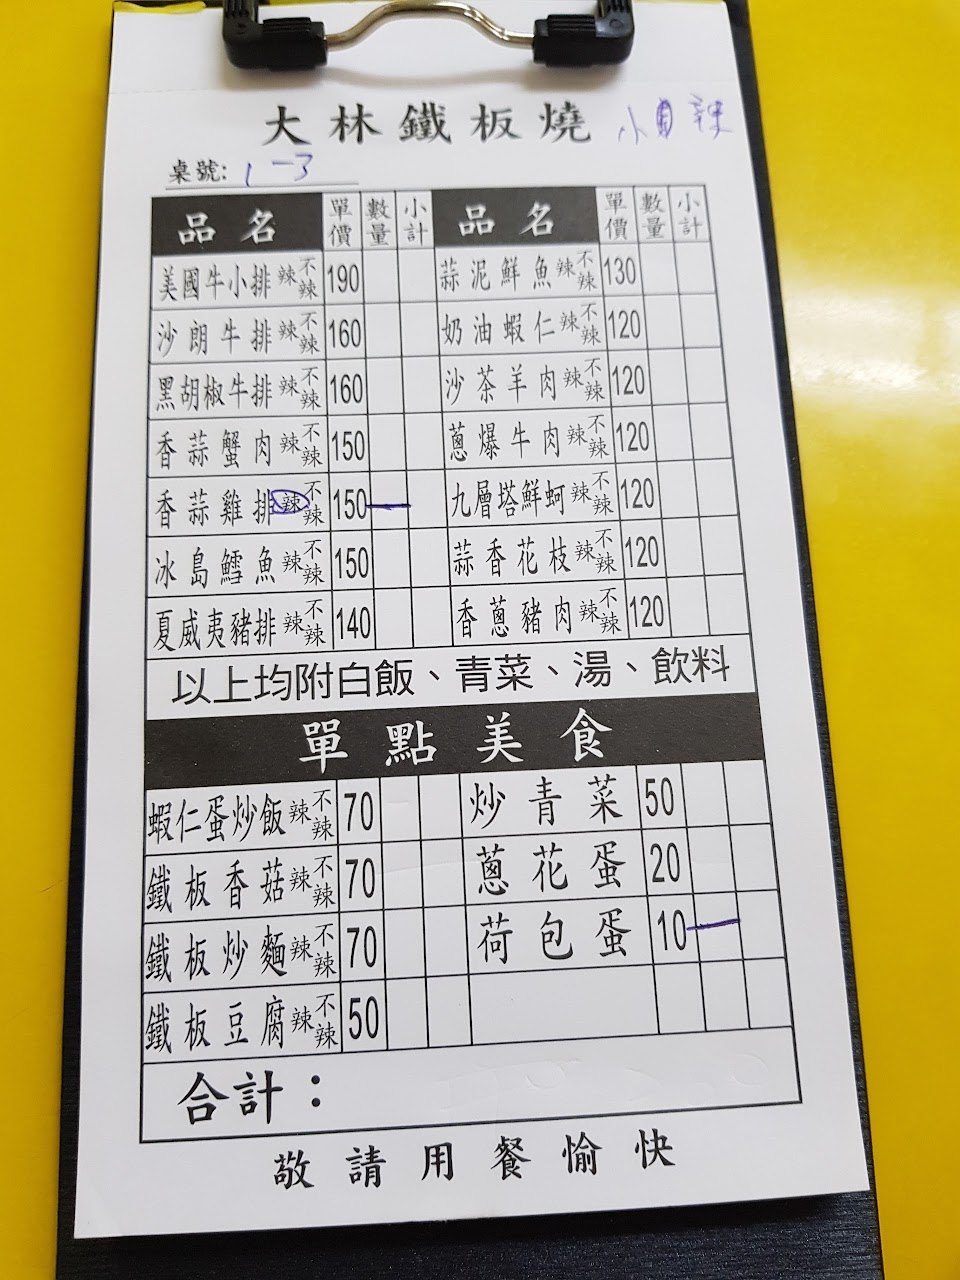 大林鐵板燒 小 辣
桌號: 1-3
品名 單價 數量 小計 品名 單價 數量 小計
美國牛小排 辣 不辣 190 蒜泥鮮魚 辣 不辣 130
沙朗牛排 辣 不辣 160 奶油蝦仁 辣 不辣 120
黑胡椒牛排 辣 不辣 160 沙茶羊肉 辣 不辣 120
香蒜蟹肉 辣 不辣 150 蔥爆牛肉 辣 不辣 120
香蒜雞排 辣 不辣 150 一 九層塔鮮蚵 辣 不辣 120
冰島鱈魚 辣 不辣 150 蒜香花枝 辣 不辣 120
夏威夷豬排 辣 不辣 140 香蔥豬肉 辣 不辣 120
以上均附白飯、青菜、湯、飲料
單點美食
蝦仁蛋炒飯 辣 不辣 70 炒青菜 50
鐵板香菇 辣 不辣 70 蔥花蛋 20
鐵板炒麵 辣 不辣 70 荷包蛋 10 一
鐵板豆腐 辣 不辣 50
合計：
敬請用餐愉快